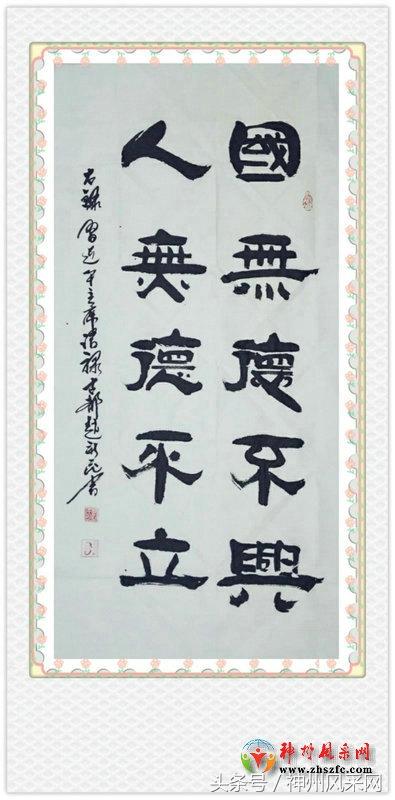 國無德不興
人無德不立
右錄習近平主席語録
神州风采网
www.zhszfc.com
头条号／神州风采网